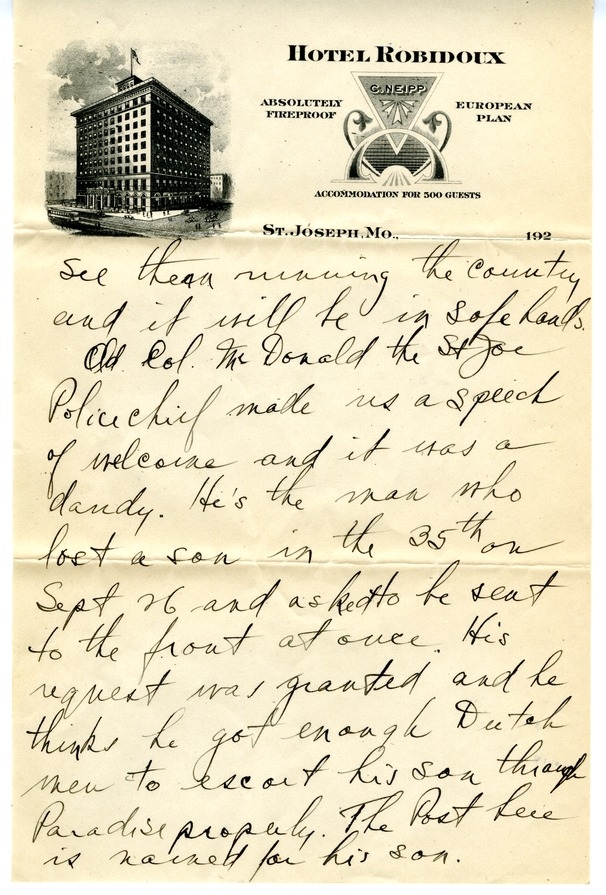 HOTEL ROBIDOUX
C. NEIPP
ABSOLUTELY FIREPROOF
EUROPEAN PLAN
ACCOMMODATION FOR 500 GUESTS
ST. JOSEPH, MO., 192
see them running the country
and it will be in safe hands.
Old Col. McDonald the St Joe
Police chief made us a speech
of welcome and it was a
dandy. He's the man who
lost a son in the 35th on
Sept 26 and asked to be sent
to the front at once. His
request was granted and he
thinks he got enough Dutch
men to escort his son through
Paradise properly. The Post here
is named for his son.